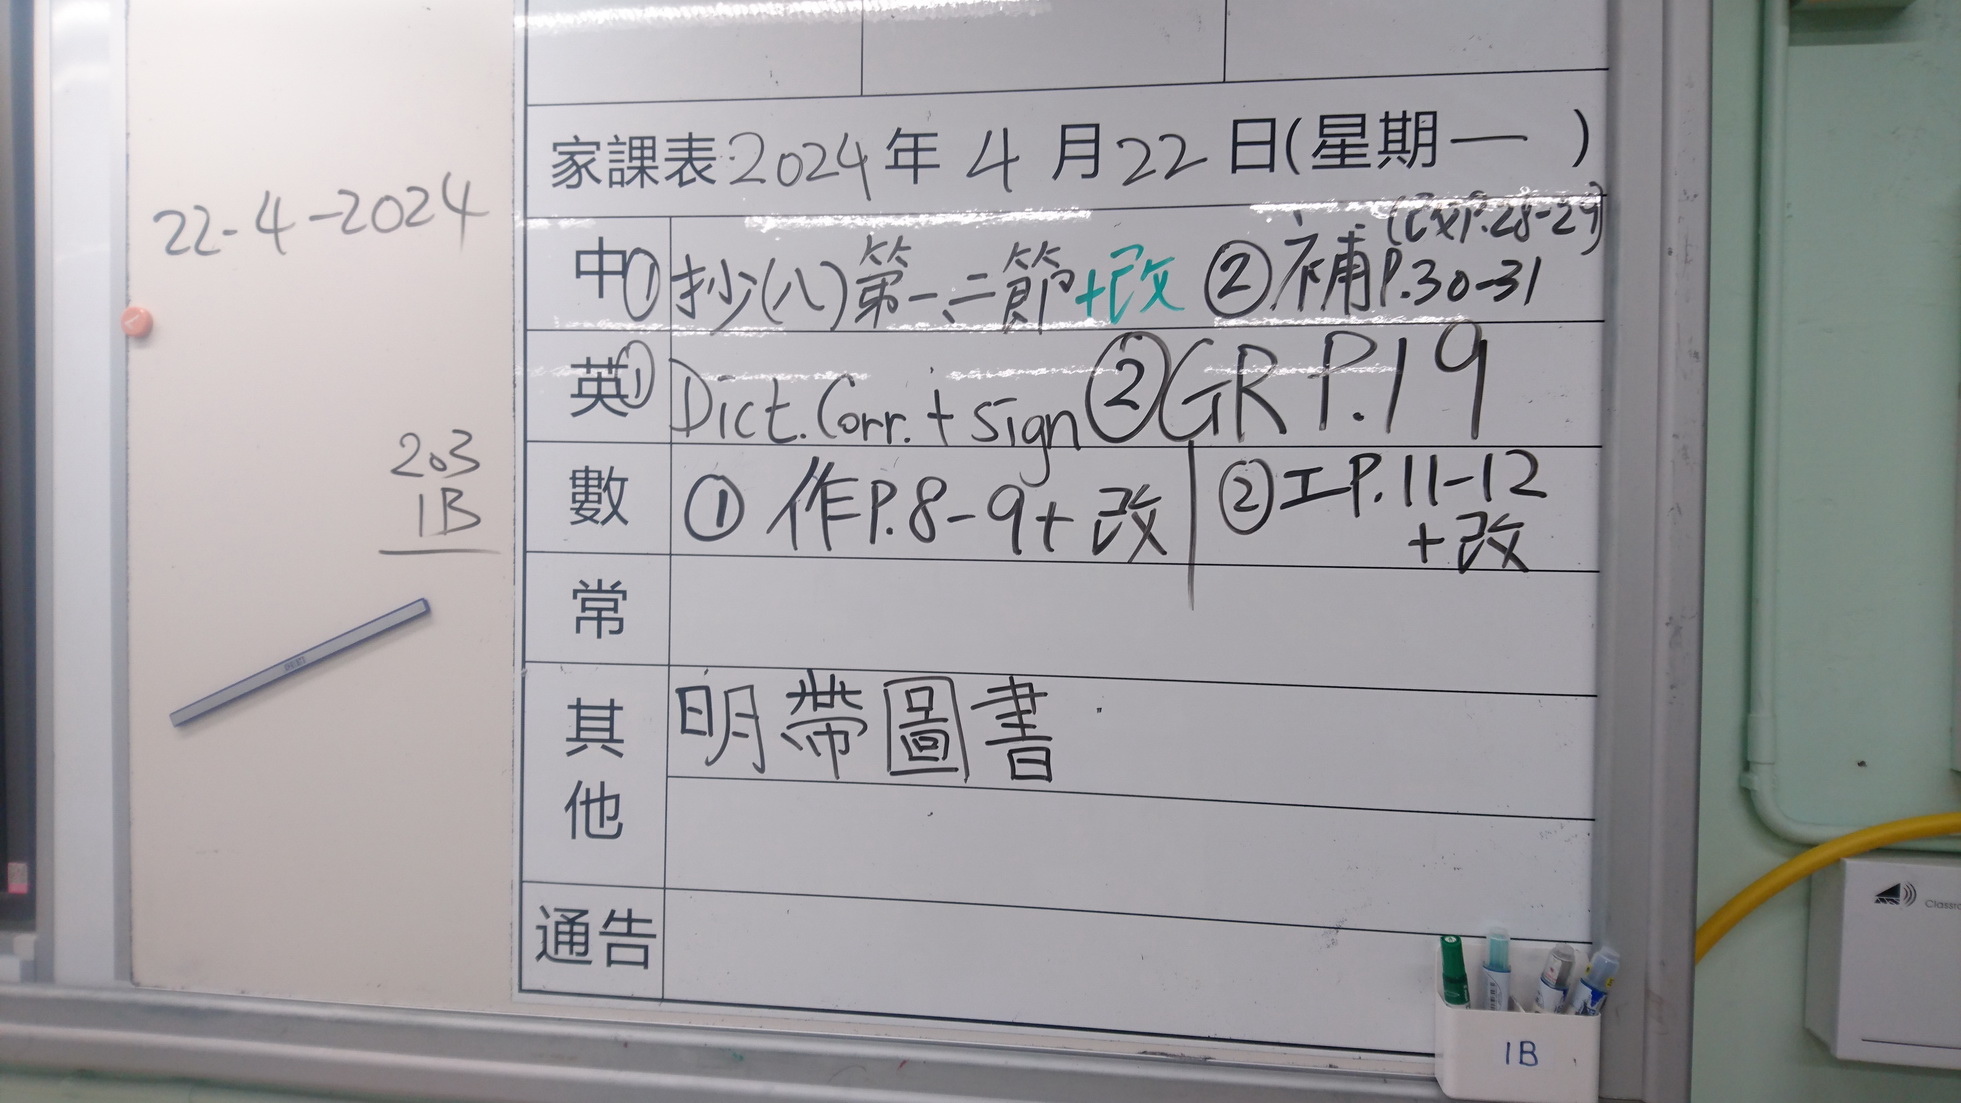 家課表 2024年 4 月 22 日(星期一 )
22-4-2024
(改P.28-29)
中 ① 抄(八)第一、二節+改 ② 補P.30-31
英 ① Dict. Corr. + sign ② GR P.19
數 ① 作P.8-9+改 ② 工P.11-12
+改
203
1B
常
其他
明帶圖書
通告
1B